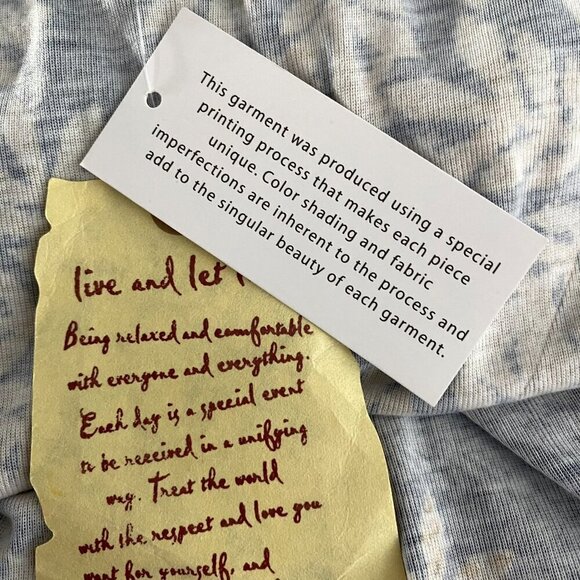 This garment was produced using a special
printing process that makes each piece
unique. Color shading and fabric
imperfections are inherent to the process and
add to the singular beauty of each garment.
live and let
Being relaxed and comfortable
with everyone and everything.
Each day is a special event
to be received in a unifying
way. Treat the world
with the respect and love you
want for yourself, and